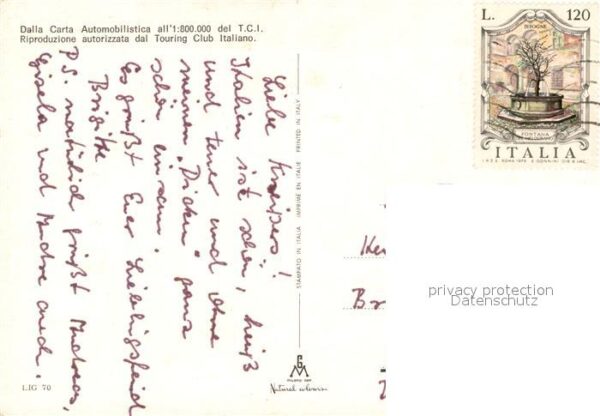 Dalla Carta Automobilistica all'1:800.000 del T.C.I.
Riproduzione autorizzata dal Touring Club Italiano.
L. 120
FONTANA
ITALIA
Liebe
Italien ist schön, heiß
und teuer und ohne
meinen "Dicken" ganz
schön einsam.
Es grüßt Euer Lieblingsfeind
Brigitte
P.S. natürlich grüßt
Gisela und auch.
STAMPATO IN ITALIA IMPRIMÉ EN ITALIE PRINTED IN ITALY
Ke
Br
privacy protection
Datenschutz
GM
Natural colours
LIG 70